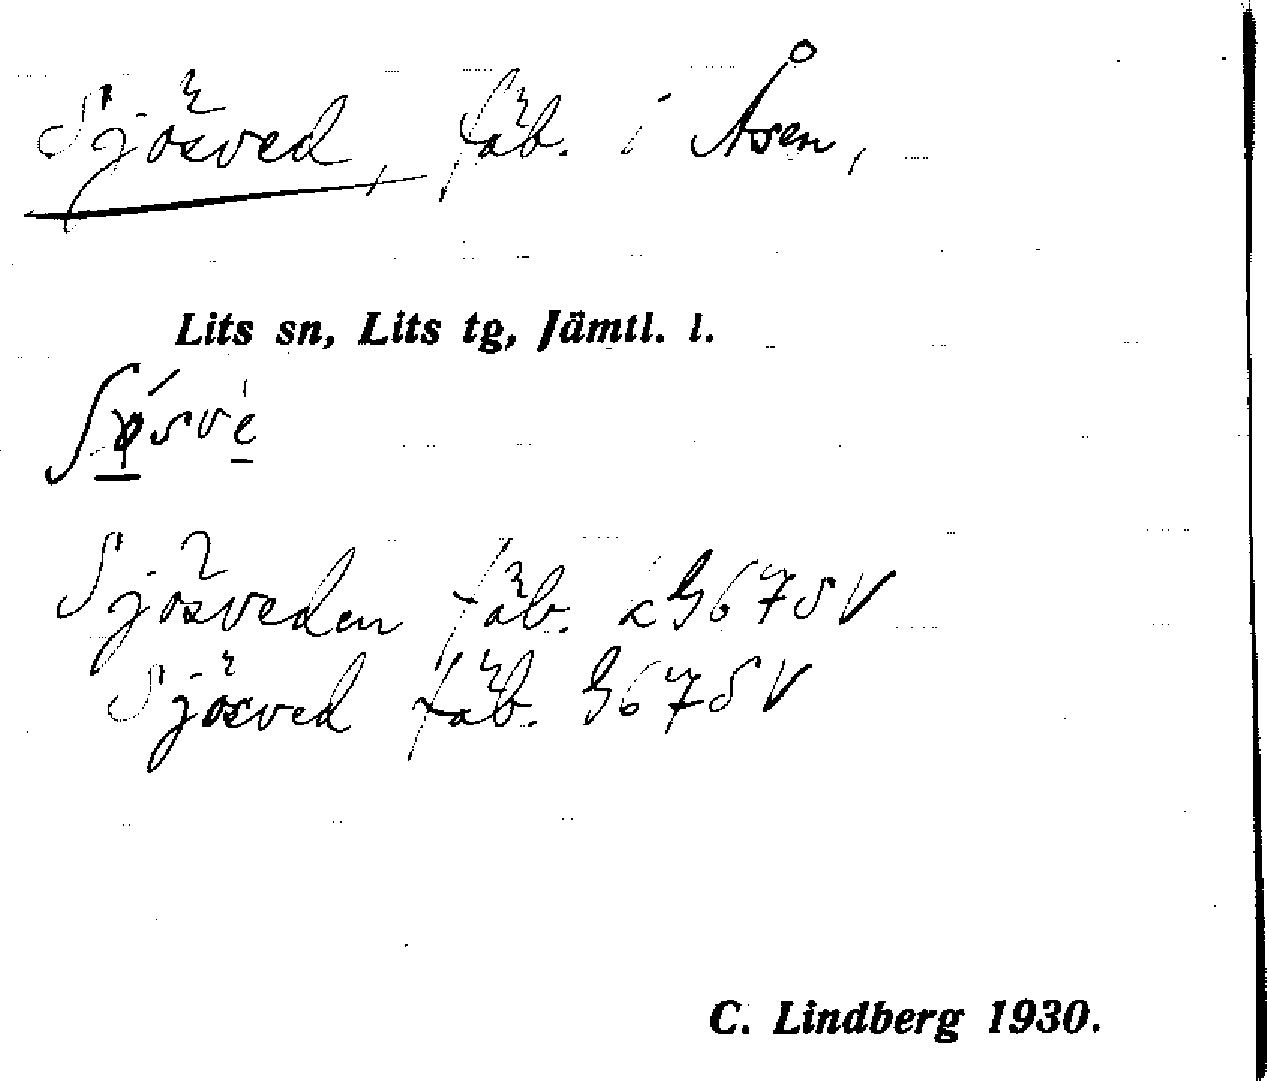 Sjösved, fäb. i Åsen,
Lits sn, Lits tg, Jämtl. l.
Sjösveden fäb. G67SV
Sjösved fäb. G67SV
C. Lindberg 1930.